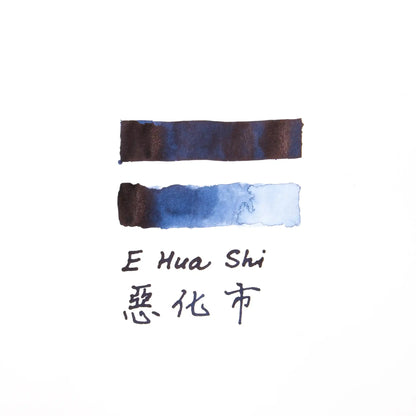 E Hua Shi
惡化市